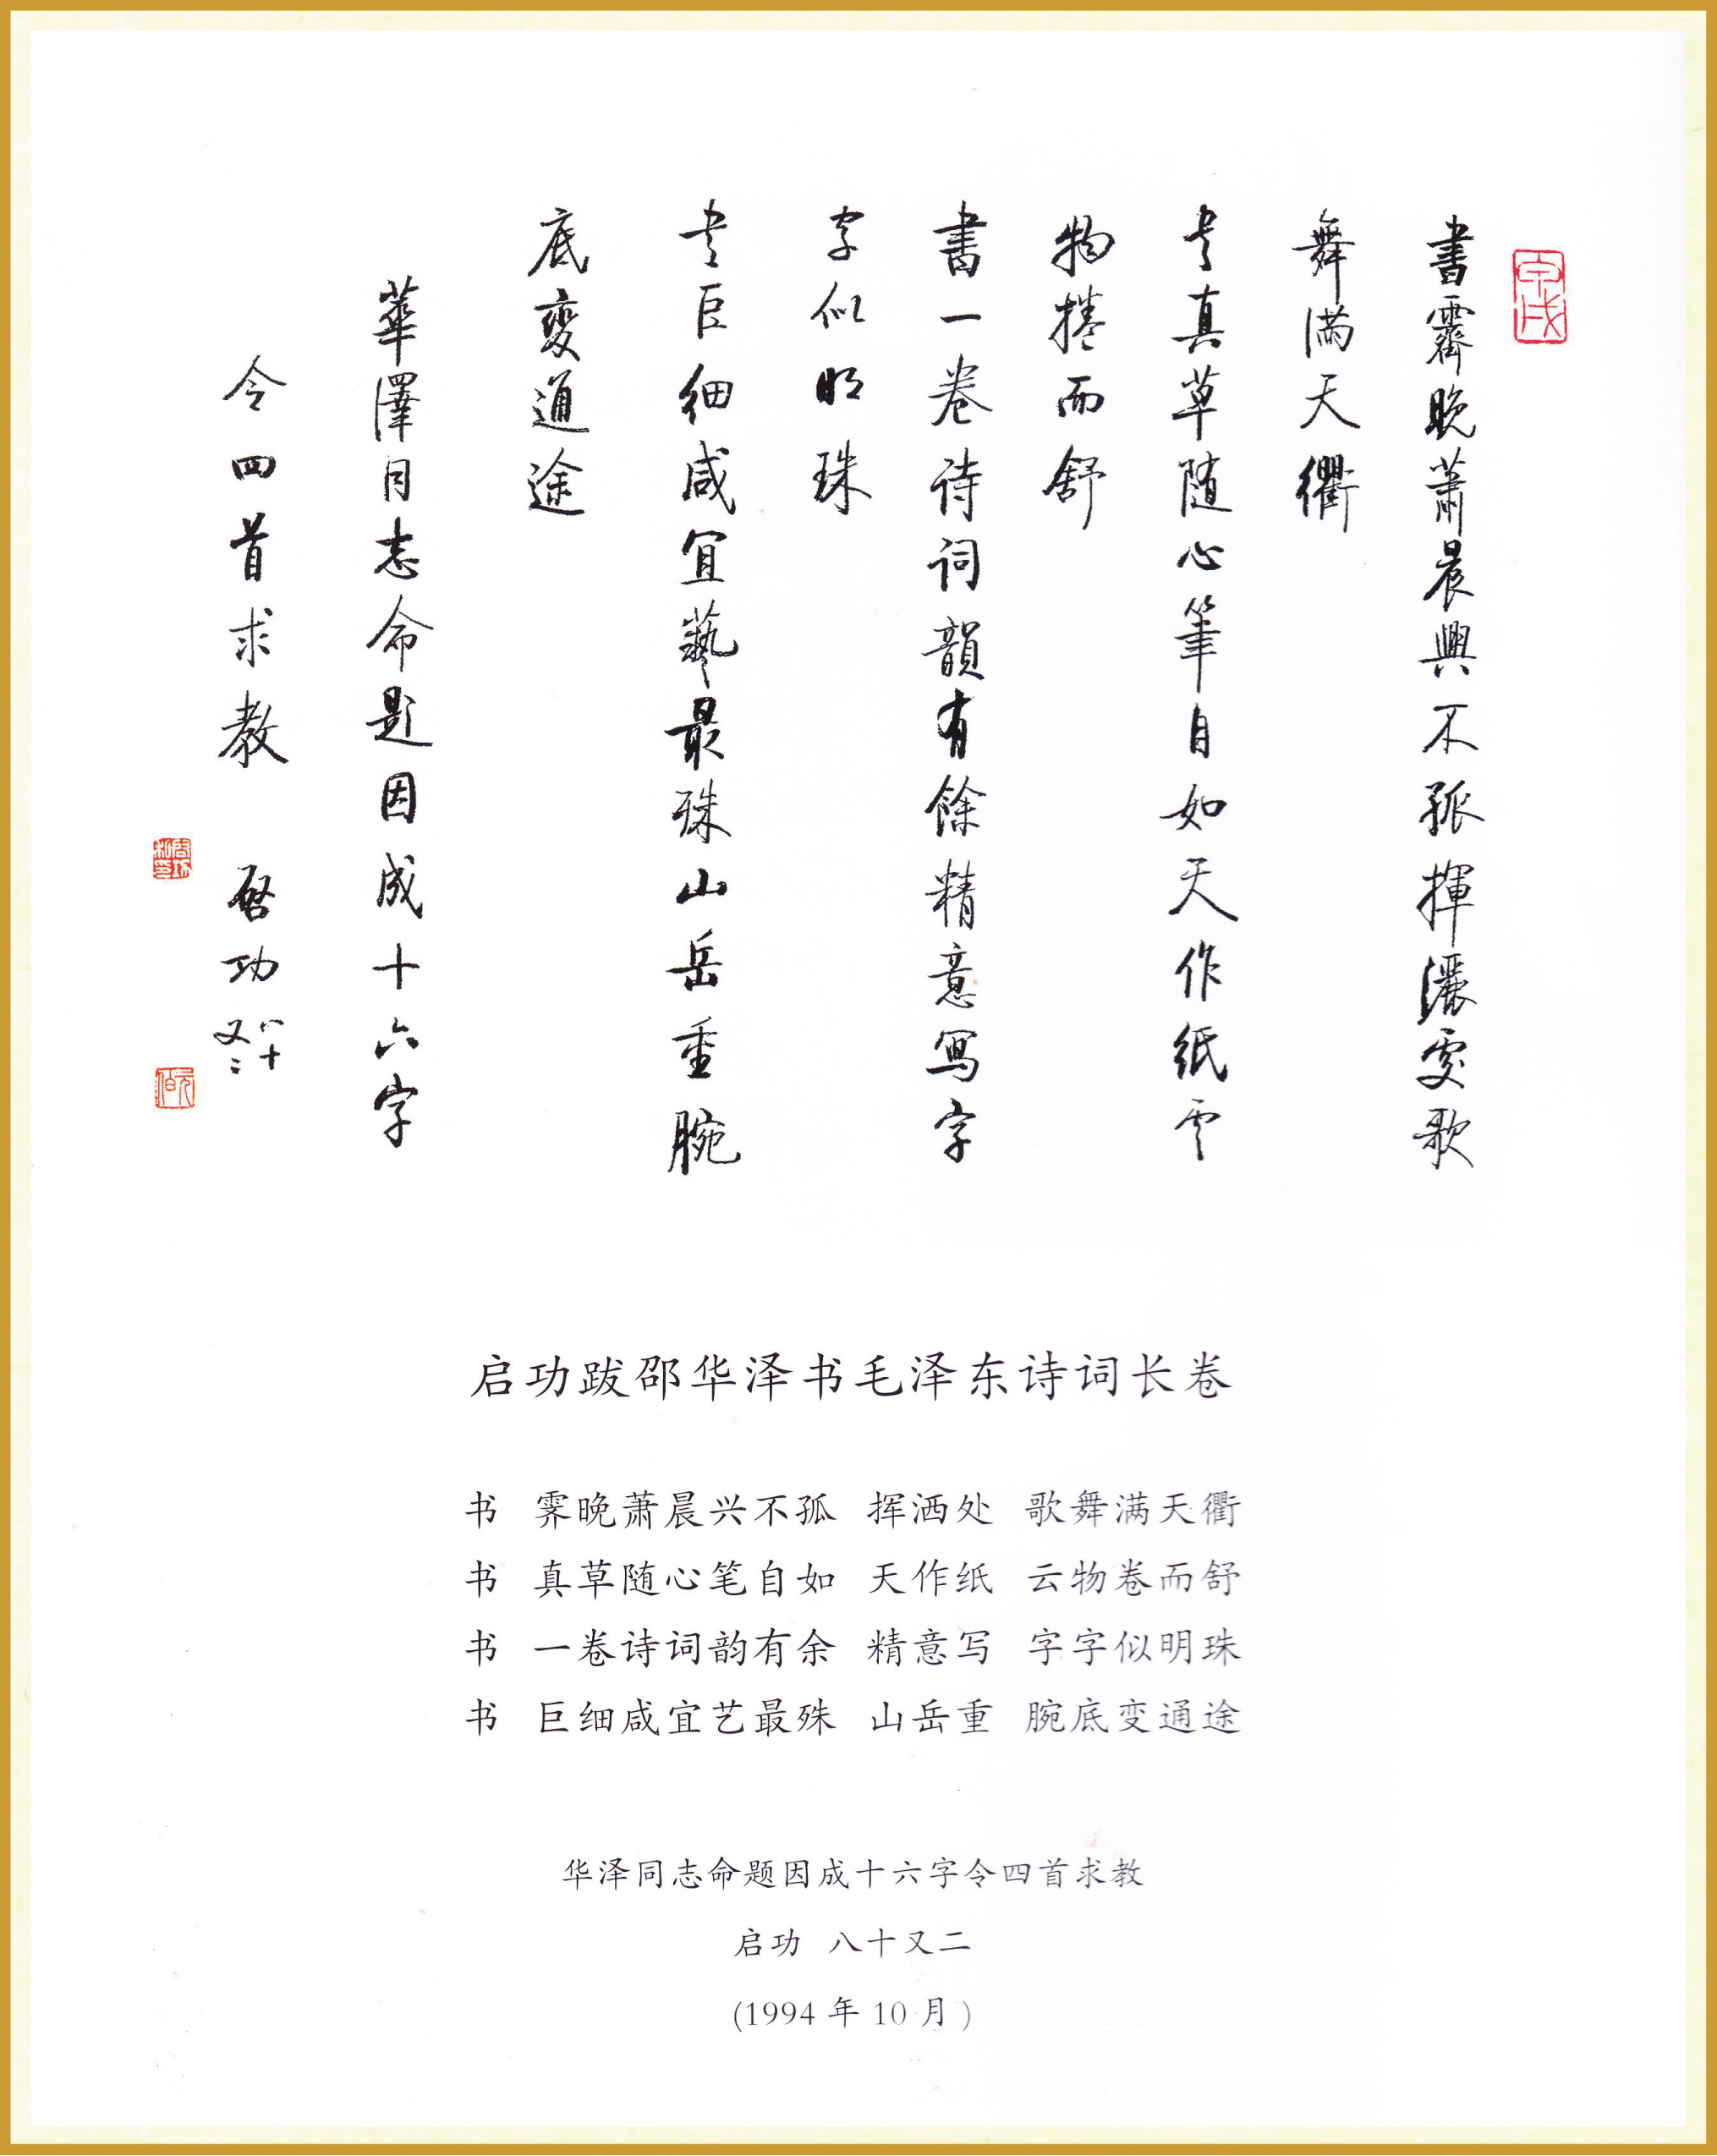 書霽晚蕭晨興不孤揮灑處歌
舞满天衢
书真草随心筆自如天作紙雲
物捲而舒
書一卷诗词韻有餘精意写字
字似明珠
书巨细咸宜藝最殊山岳重腕
底變通途
華澤同志命題因成十六字
令四首求教 啓功 八十又二
启功跋邵华泽书毛泽东诗词长卷
书 霁晚萧晨兴不孤 挥洒处 歌舞满天衢
书 真草随心笔自如 天作纸 云物卷而舒
书 一卷诗词韵有余 精意写 字字似明珠
书 巨细咸宜艺最殊 山岳重 腕底变通途
华泽同志命题因成十六字令四首求教
启功 八十又二
(1994 年 10 月)